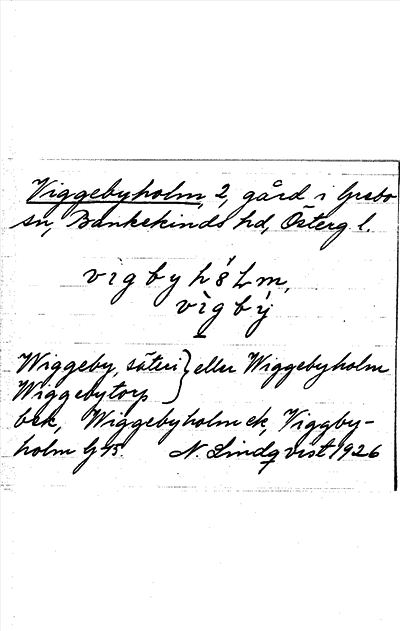 Viggebyholm, 2, gård i Grebo
sn, Bankekinds hd, Österg l.
vìgbyhʹ8Lm,
vìgbyʹ
Wiggeby, säteri } eller Wiggebyholm
Wiggebytorp
bek, Wiggebyholm ek, Viggby-
holm GK. N. Lindqvist 1926